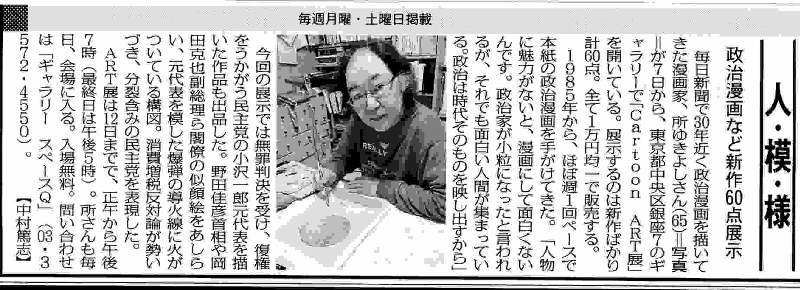 毎週月曜・土曜日掲載
人・模・様
政治漫画など新作60点展示
毎日新聞で30年近く政治漫画を描いて
きた漫画家、所ゆきよしさん(65)＝写真
＝が7日から、東京都中央区銀座7のギ
ャラリーで「Cartoon ART展」
を開いている。展示するのは新作ばかり
計60点。全て1万円均一で販売する。
1985年から、ほぼ週1回ペースで
本紙の政治漫画を手がけてきた。「人物
に魅力がないと、漫画にして面白くない
んです。政治家が小粒になったと言われ
るが、それでも面白い人間が集まってい
る。政治は時代そのものを映し出すから」
今回の展示では無罪判決を受け、復権
をうかがう民主党の小沢一郎元代表を描
いた作品も出品した。野田佳彦首相や岡
田克也副総理ら閣僚の似顔絵をあしら
い、元代表を模した爆弾の導火線に火が
ついている構図。消費増税反対論が勢い
づき、分裂含みの民主党を表現した。
ART展は12日までで、正午から午後
7時(最終日は午後5時)。所さんも毎
日、会場に入る。入場無料。問い合わせ
は「ギャラリー スペースQ」(03・3
572・4550)。
【中村篤志】